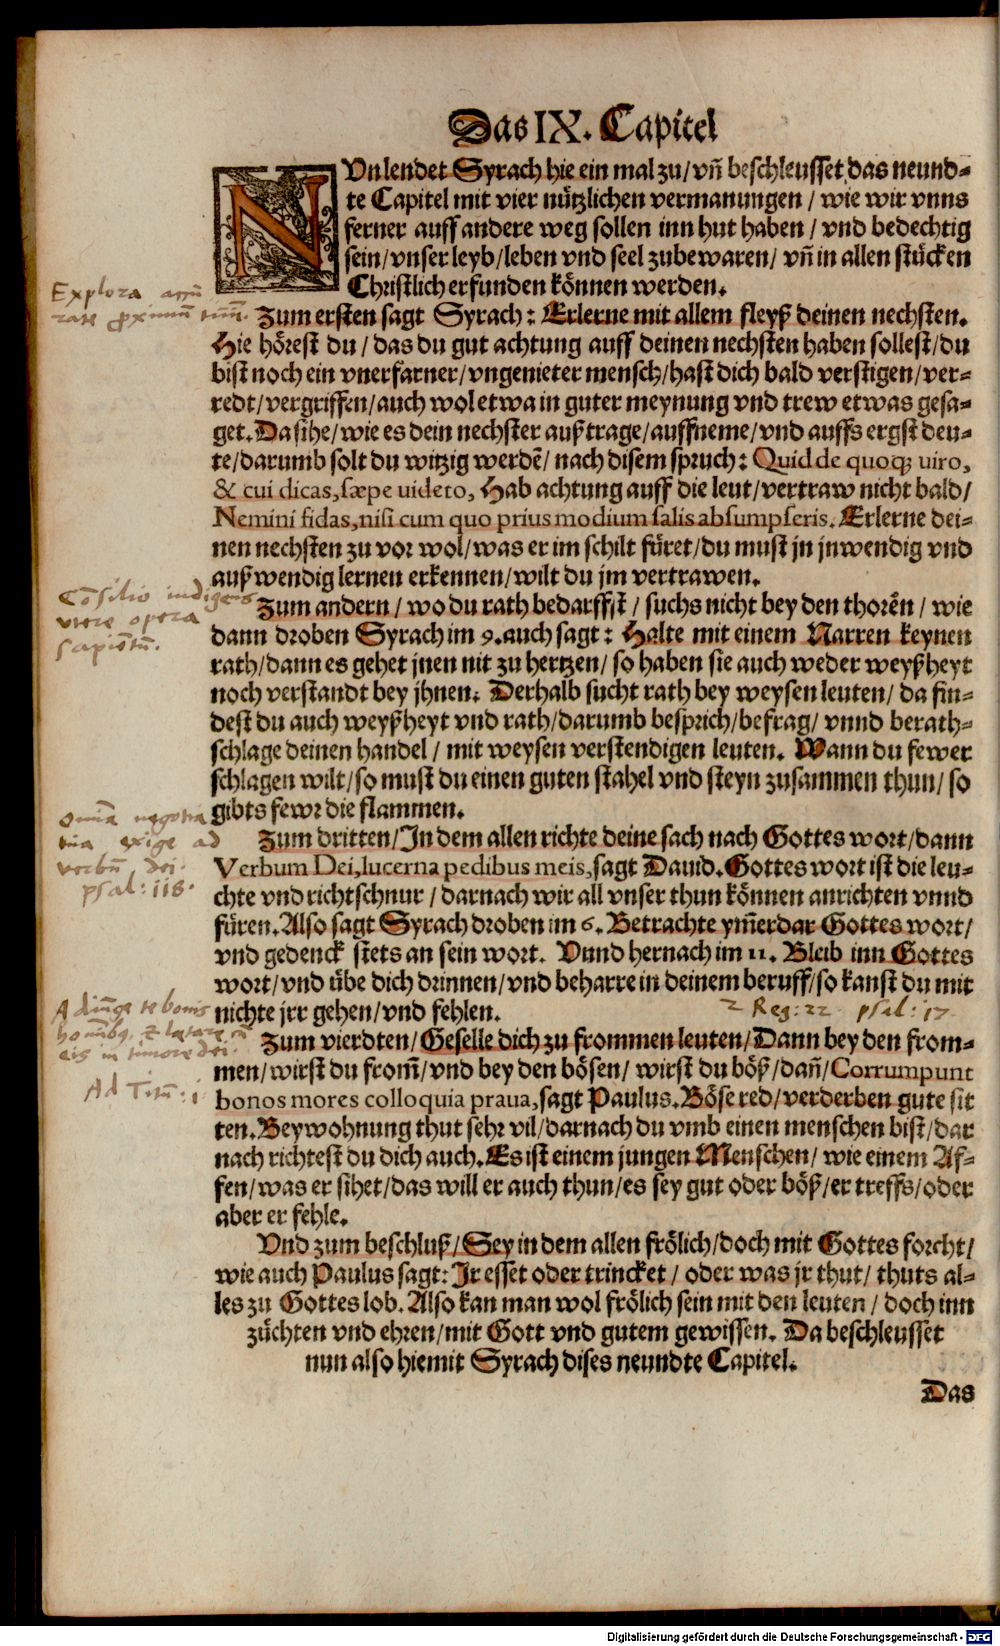 Das IX. Capitel
NVn lendet Syrach hie ein mal zu/ vñ beschleusset das neund-
te Capitel mit vier nützlichen vermanungen / wie wir vnns
ferner auff andere weg sollen inn hut haben / vnd bedechtig
sein/ vnser leyb/ leben vnd seel zubewaren/ vñ in allen stücken
Christlich erfunden können werden.
Explora accu
rate proximum tuum.
Zum ersten sagt Syrach: Erlerne mit allem fleyß deinen nechsten.
Hie hörest du / das du gut achtung auff deinen nechsten haben sollest/ du
bist noch ein vnerfarner/ vngenieter mensch/ hast dich bald verstigen/ ver-
redt/ vergriffen/ auch wol etwa in guter meynung vnd trew etwas gesa-
get. Da sihe/ wie es dein nechster außtrage/ auffneme/ vnd auffs ergst deu-
te/ darumb solt du witzig werdē/ nach disem spruch: Quid de quoq; uiro,
& cui dicas, sæpe uideto, Hab achtung auff die leut/ vertraw nicht bald/
Nemini fidas, nisi cum quo prius modium salis absumpseris. Erlerne dei-
nen nechsten zu vor wol/ was er im schilt füret/ du must jn jnwendig vnd
außwendig lernen erkennen/ wilt du jm vertrawen.
Cōsilio indigens
vtere opera
sapiētū.
Zum andern / wo du rath bedarffst / suchs nicht bey den thorēn / wie
dann droben Syrach im 9. auch sagt: Halte mit einem Narren keynen
rath/ dann es gehet jnen nit zu hertzen/ so haben sie auch weder weyßheyt
noch verstandt bey jhnen. Derhalb sucht rath bey weysen leuten/ da fin-
dest du auch weyßheyt vnd rath/ darumb besprich/ befrag/ vnnd berath-
schlage deinen handel / mit weysen verstendigen leuten. Wann du fewer
schlagen wilt/ so must du einen guten stahel vnd steyn zusammen thun/ so
gibts fewr die flammen.
Omīa negotia
tua exige ad
verbū dei.
psal: 118.
Zum dritten/ In dem allen richte deine sach nach Gottes wort/ dann
Verbum Dei, lucerna pedibus meis, sagt Dauid. Gottes wort ist die leu-
chte vnd richtschnur / darnach wir all vnser thun können anrichten vnnd
füren. Also sagt Syrach droben im 6. Betrachte ym̄erdar Gottes wort/
vnd gedenck stets an sein wort. Vnnd hernach im 11. Bleib inn Gottes
wort/ vnd übe dich drinnen/ vnd beharre in deinem beruff/ so kanst du mit
nichte jrr gehen/ vnd fehlen.
2 Reg: 22 psal: 17.
Adiūge te bonis
homībq, & lætare cū
eis in timore dei.
Ad Titū: 1
Zum vierdten/ Geselle dich zu frommen leuten/ Dann bey den from-
men/ wirst du from̄/ vnd bey den bösen/ wirst du böß/ dañ/ Corrumpunt
bonos mores colloquia praua, sagt Paulus. Böse red/ verderben gute sit
ten. Beywohnung thut sehr vil/ darnach du vmb einen menschen bist/ dar
nach richtest du dich auch. Es ist einem jungen Menschen/ wie einem Af-
fen/ was er sihet/ das will er auch thun/ es sey gut oder böß/ er treffs/ oder
aber er fehle.
Vnd zum beschluß/ Sey in dem allen frölich/ doch mit Gottes forcht/
wie auch Paulus sagt: Jr esset oder trincket / oder was jr thut/ thuts al-
les zu Gottes lob. Also kan man wol frölich sein mit den leuten / doch inn
züchten vnd ehren/ mit Gott vnd gutem gewissen. Da beschleusset
nun also hiemit Syrach dises neundte Capitel.
Das
Digitalisierung gefördert durch die Deutsche Forschungsgemeinschaft - DFG